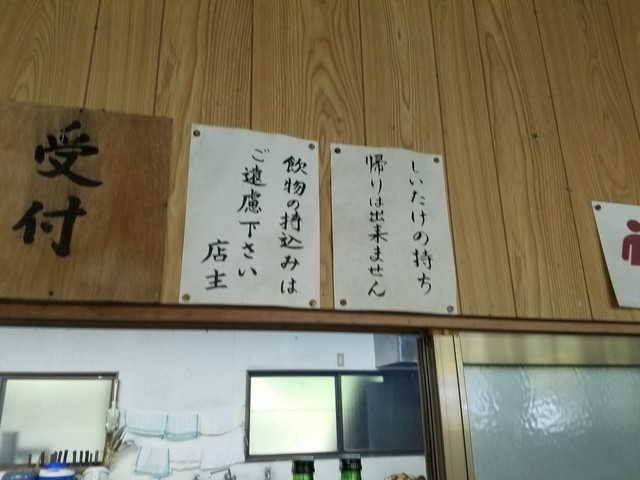 受付
飲物の持込みは
ご遠慮下さい
店主
しいたけの持ち
帰りは出来ません